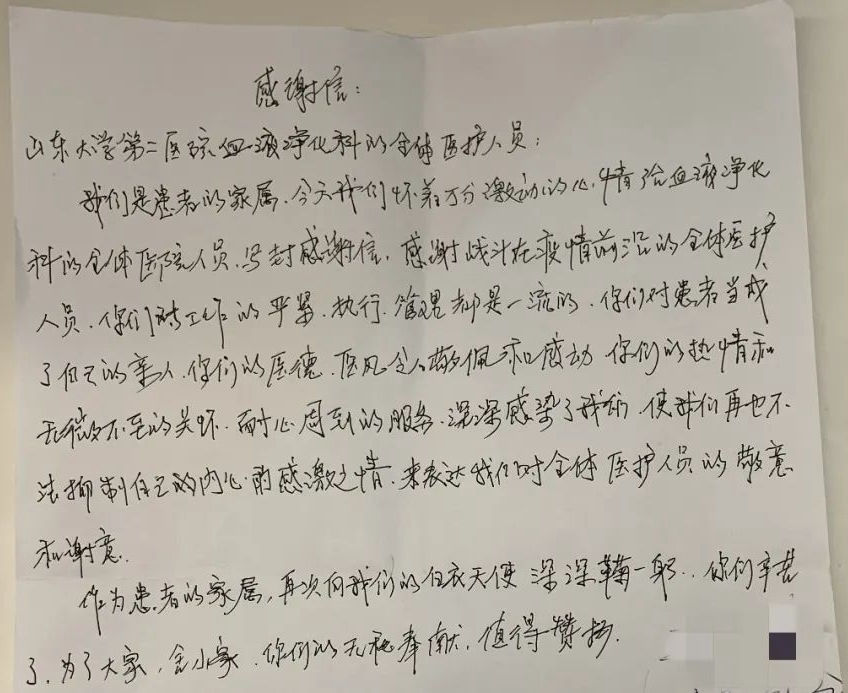 感谢信：
山东大学第二医院血液净化科的全体医护人员：
我们是患者的家属，今天我们怀着万分激动的心情给血液净化
科的全体医院人员，写封感谢信，感谢战斗在疫情前沿的全体医护
人员，你们对工作的严紧、执行、管理都是一流的，你们对患者当成
了自己的亲人，你们的医德、医风令人敬佩和感动，你们的热情和
无微不至的关怀，耐心周到的服务，深深感染了我们，使我们再也不
法抑制自己的内心的感激之情，来表达我们对全体医护人员的敬意
和谢意．
作为患者的家属，再次向我们的白衣天使深深鞠一躬．．你们辛苦
了，为了大家，舍小家，你们的无私奉献，值得赞扬．